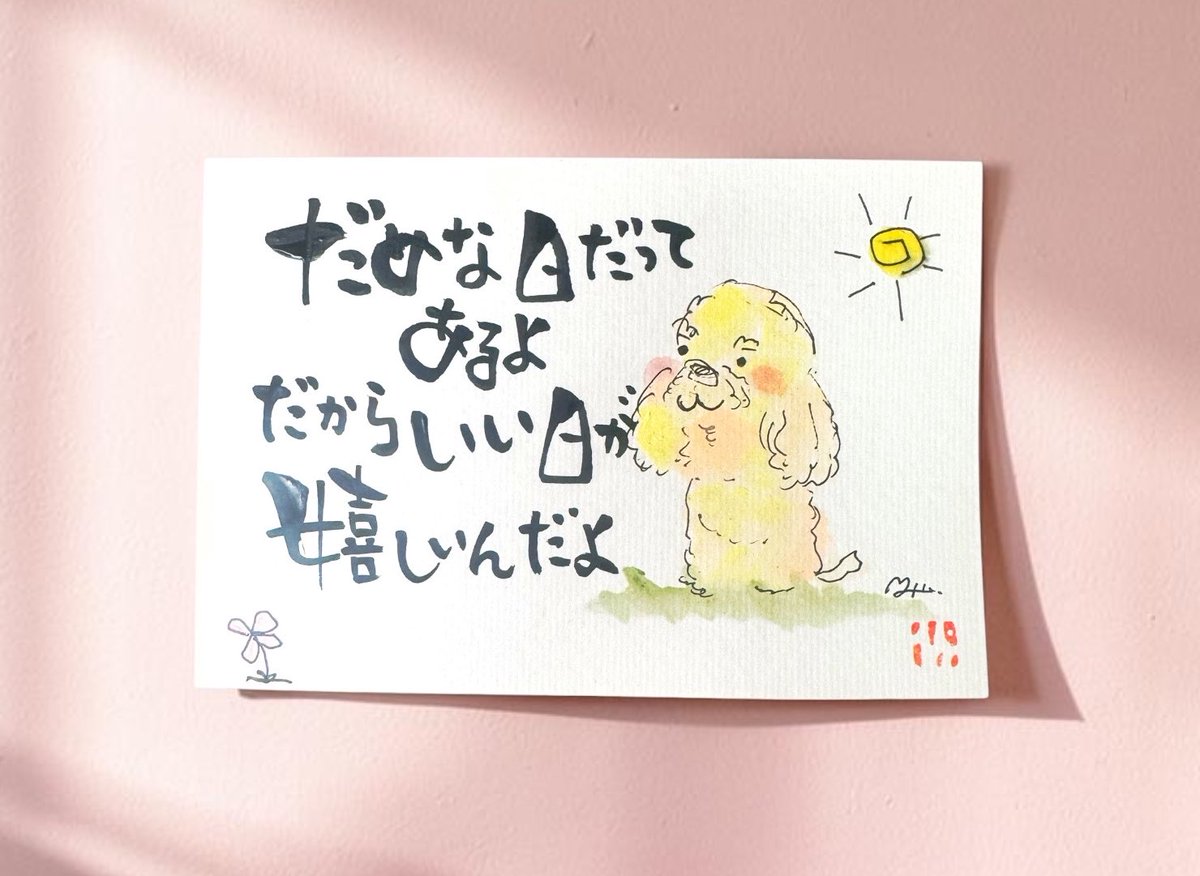 だめな日だって
あるよ
だからいい日が
嬉しいんだよ